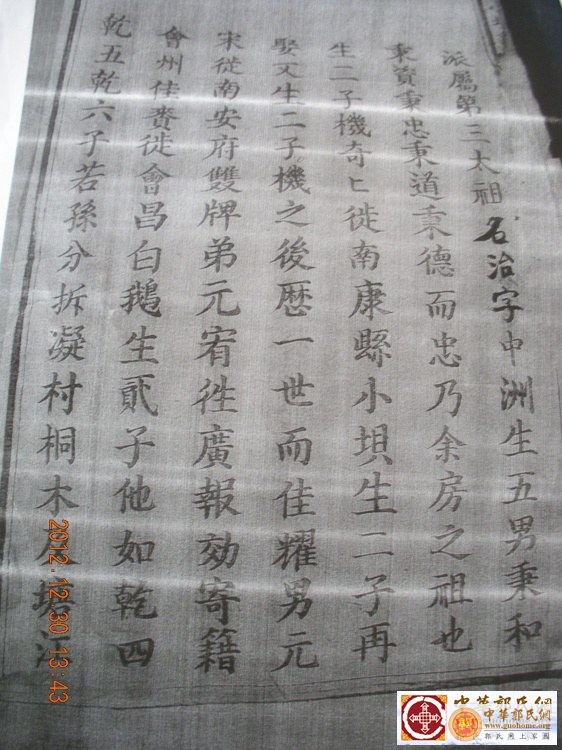 派屬第三太祖名治字中洲生五男秉和
秉資秉忠秉道秉德而忠乃余房之祖也
生二子機奇匕徙南康縣小垻生二子再
娶又生二子機之後歷一世而佳耀男元
宋從南安府雙牌弟元宥徃廣報効寄籍
會州佳賚徙會昌白鵝生貳子他如乾四
乾五乾六子若孫分拆凝村桐木
2012.12.30 13:43
中華郭氏網
中華郭氏網
www.guohome.org
郭氏網上家園